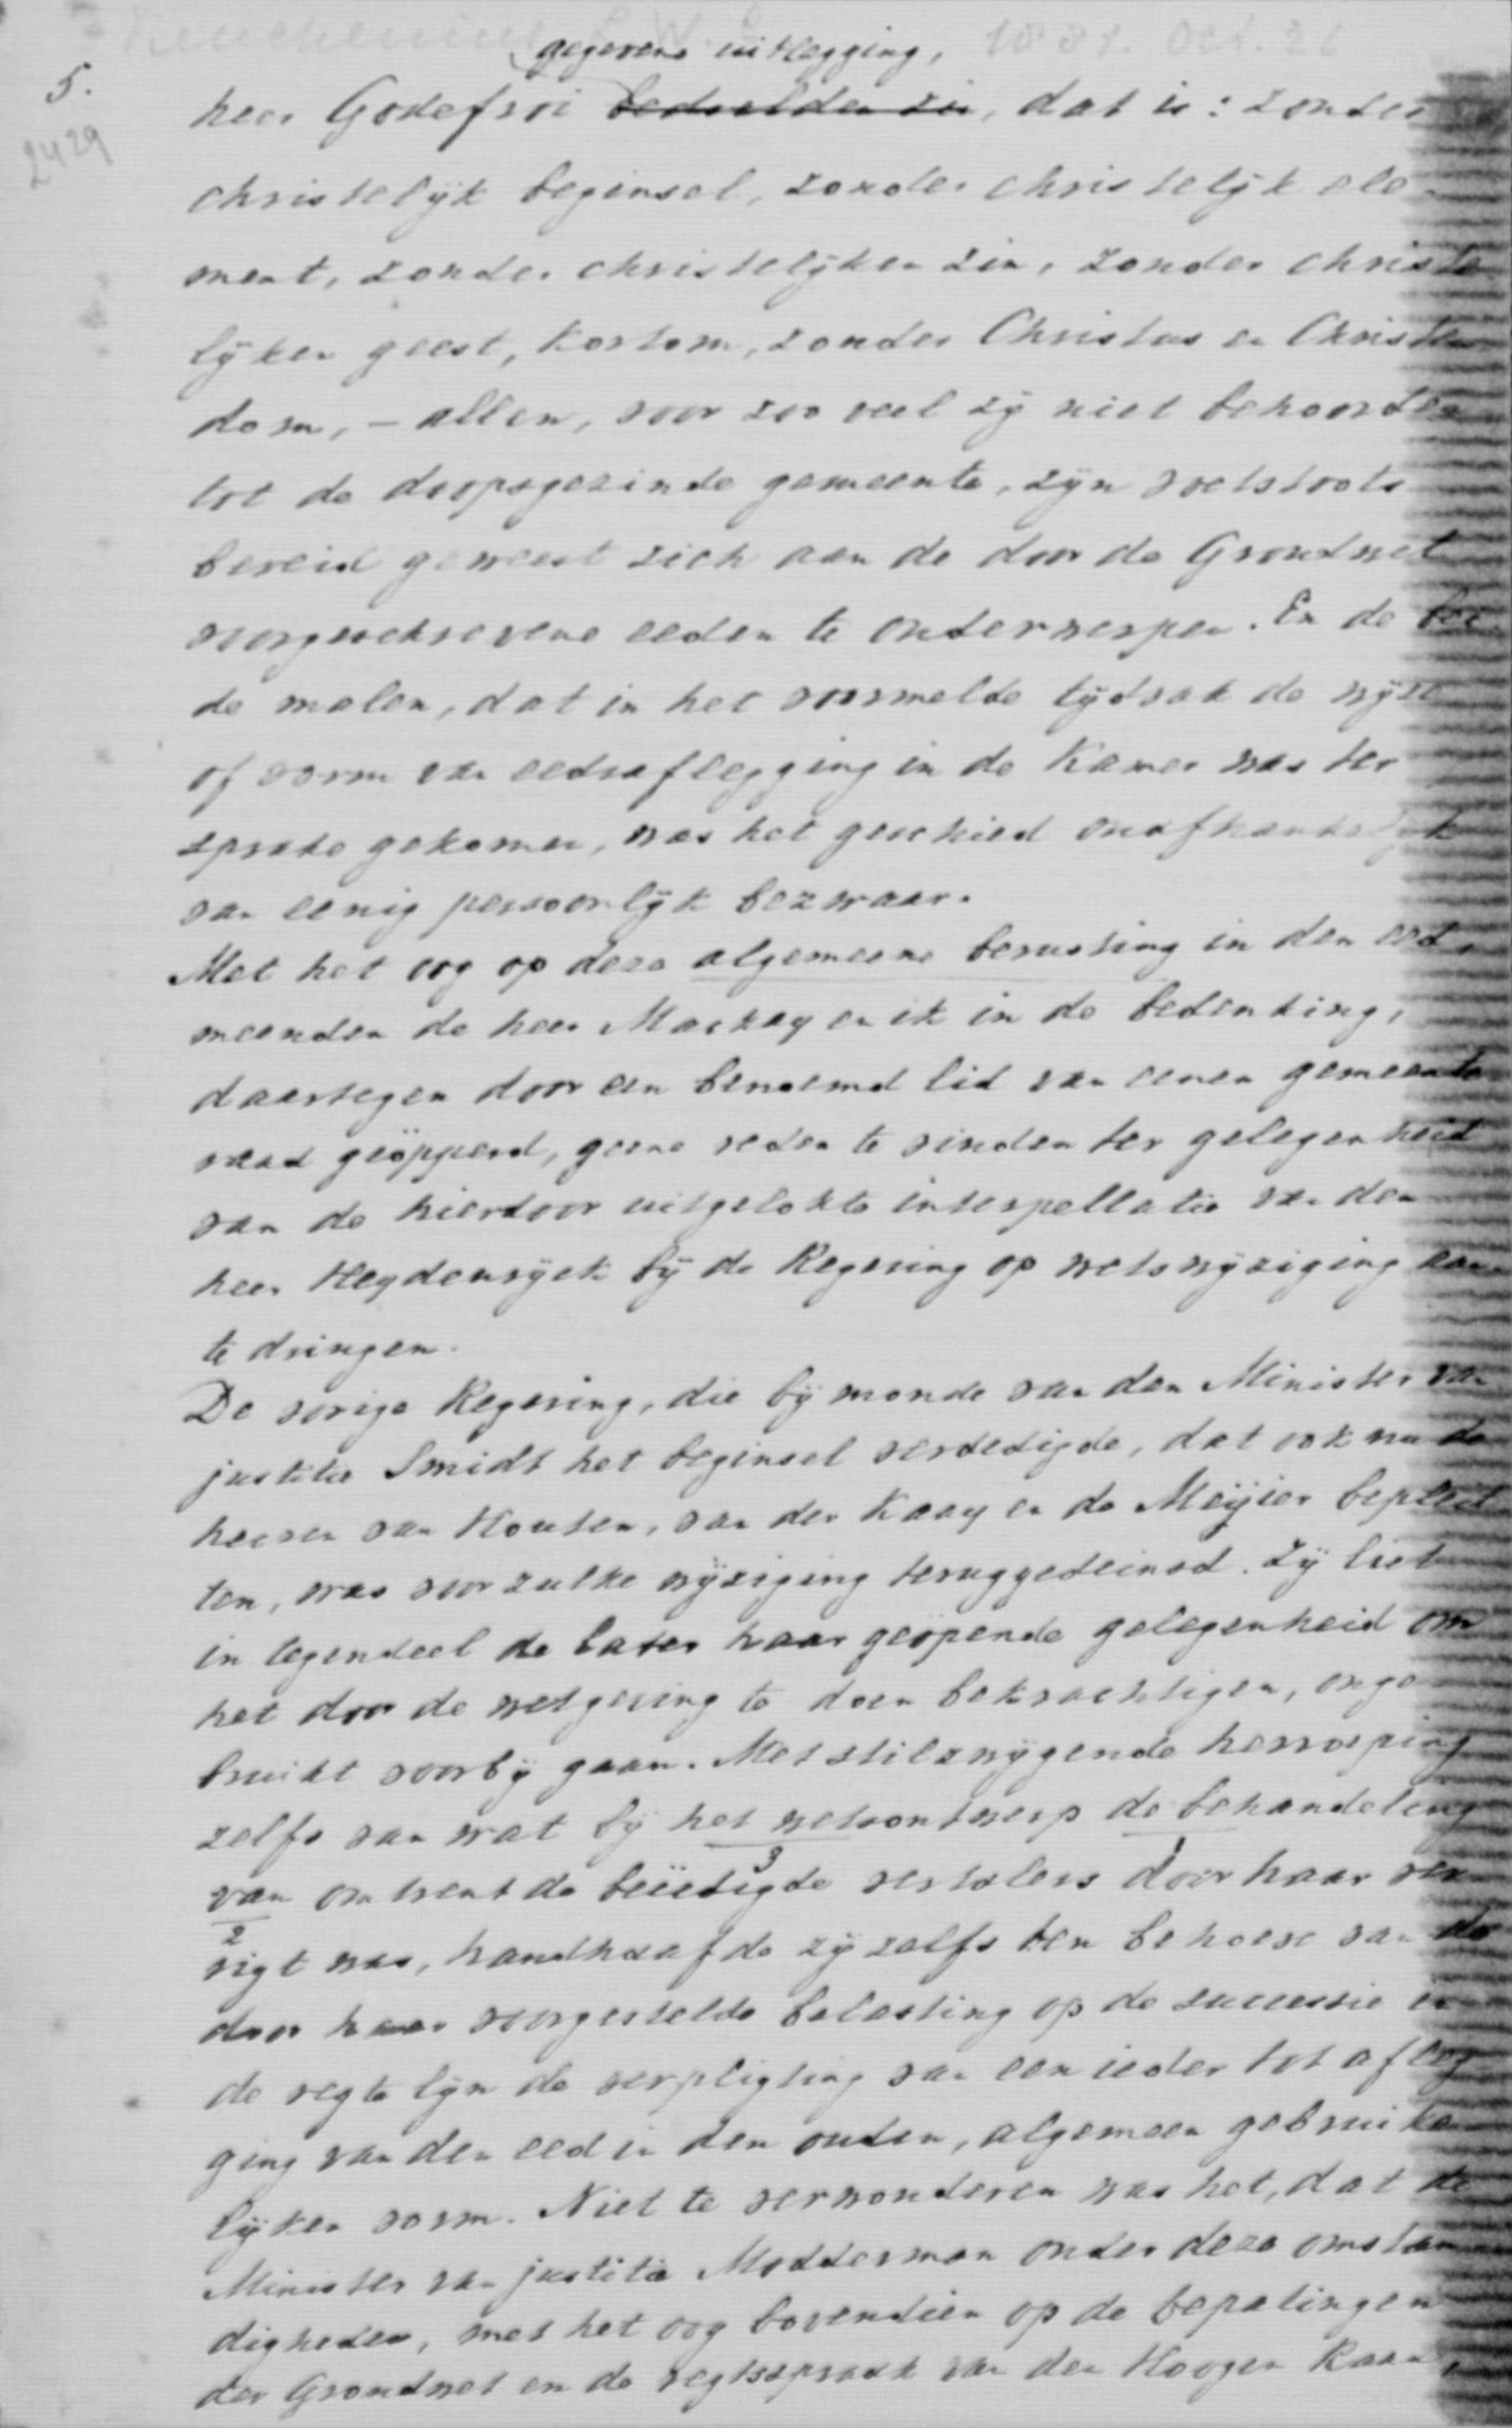 1881. Oct. 26
gegevene uitlegging,
5.
heer Godefroi bedoelden zin, dat is: zonder
2429
christelijk beginsel, zonder christelijk ele-
ment, zonder christelijken zin, zonder christe
lijken geest, kortom, zonder Christus en Christen
dom, – allen, voor zoo veel zij niet behoorden
tot de doopsgezinde gemeente, zijn voetstoots
bereid geweest zich aan de door de Grondwet
voorgeschrevene eeden te onderwerpen. En de bei
de malen, dat in het voormelde tijdvak de wijze
of vorm van eedsaflegging in de Kamer was ter
sprake gekomen, was het geschied onafhankelijk
van eenig persoonlijk bezwaar.
Met het oog op deze algemeene berusting in den eed,
meenden de heer Mackay en ik in de bedenking,
daartegen door een benoemd lid van eenen gemeente
raad geöpperd, geene reden te vinden ter gelegenheid
van de hierdoor uitgelokte interpellatie van den
heer Heydenrijck bij de Regering op wetswijziging aan
te dringen.
De vorige Regering, die bij monde van den Minister van
justitie Smidt het beginsel verdedigde, dat ook nu de
heeren van Houten, van der Kaay en de Meijier bepleit
ten, was voor zulke wijziging teruggedeinsd. Zij liet
in tegendeel de later haar geopende gelegenheid om
het door de wetgeving te doen bekrachtigen, onge
bruikt voorbij gaan. Met stilzwijgende herroeping
zelfs van wat bij het wetsontwerp de behandeling
3 1
van omtrent de beëedigde vertolers door haar ver
2
rigt was, handhaafde zij zelfs ten behoeve van de
door haar voorgestelde belasting op de successie in
de regte lijn de verpligting van een ieder tot afleg
ging van den eed in den ouden, algemeen gebruike
lijken vorm. Niet te verwonderen was het, dat de
Minister van justitie Modderman onder deze omstan
digheden, met het oog bovendien op de bepalingen
der Grondwet en de regtspraak van den Hoogen Raad,